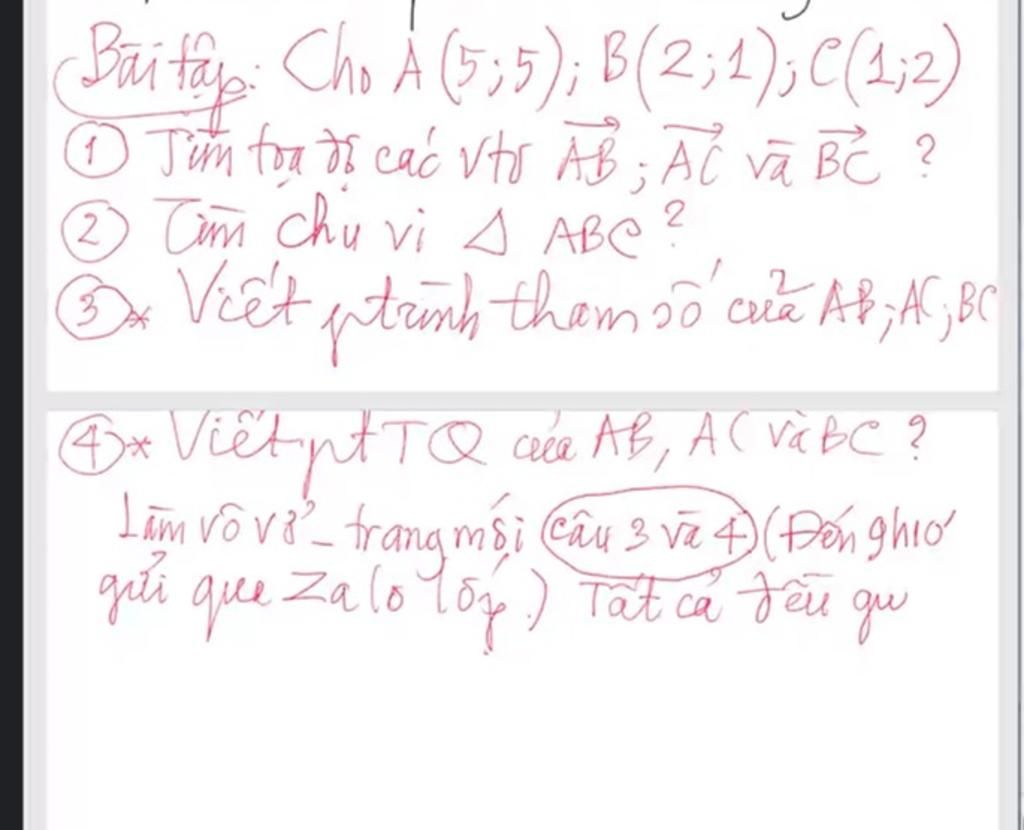 Bài tập: Cho A(5;5); B(2;1); C(1;2)
① Tìm toạ độ các vtơ AB; AC và BC ?
② Tìm chu vi Δ ABC ?
③* Viết ptrình tham số của AB; AC; BC
④* Viết pt TQ của AB, AC và BC ?
Làm vô vở - trang mới câu 3 và 4 (Đến 9h10'
gửi qua Zalo lớp.) Tất cả đều gu